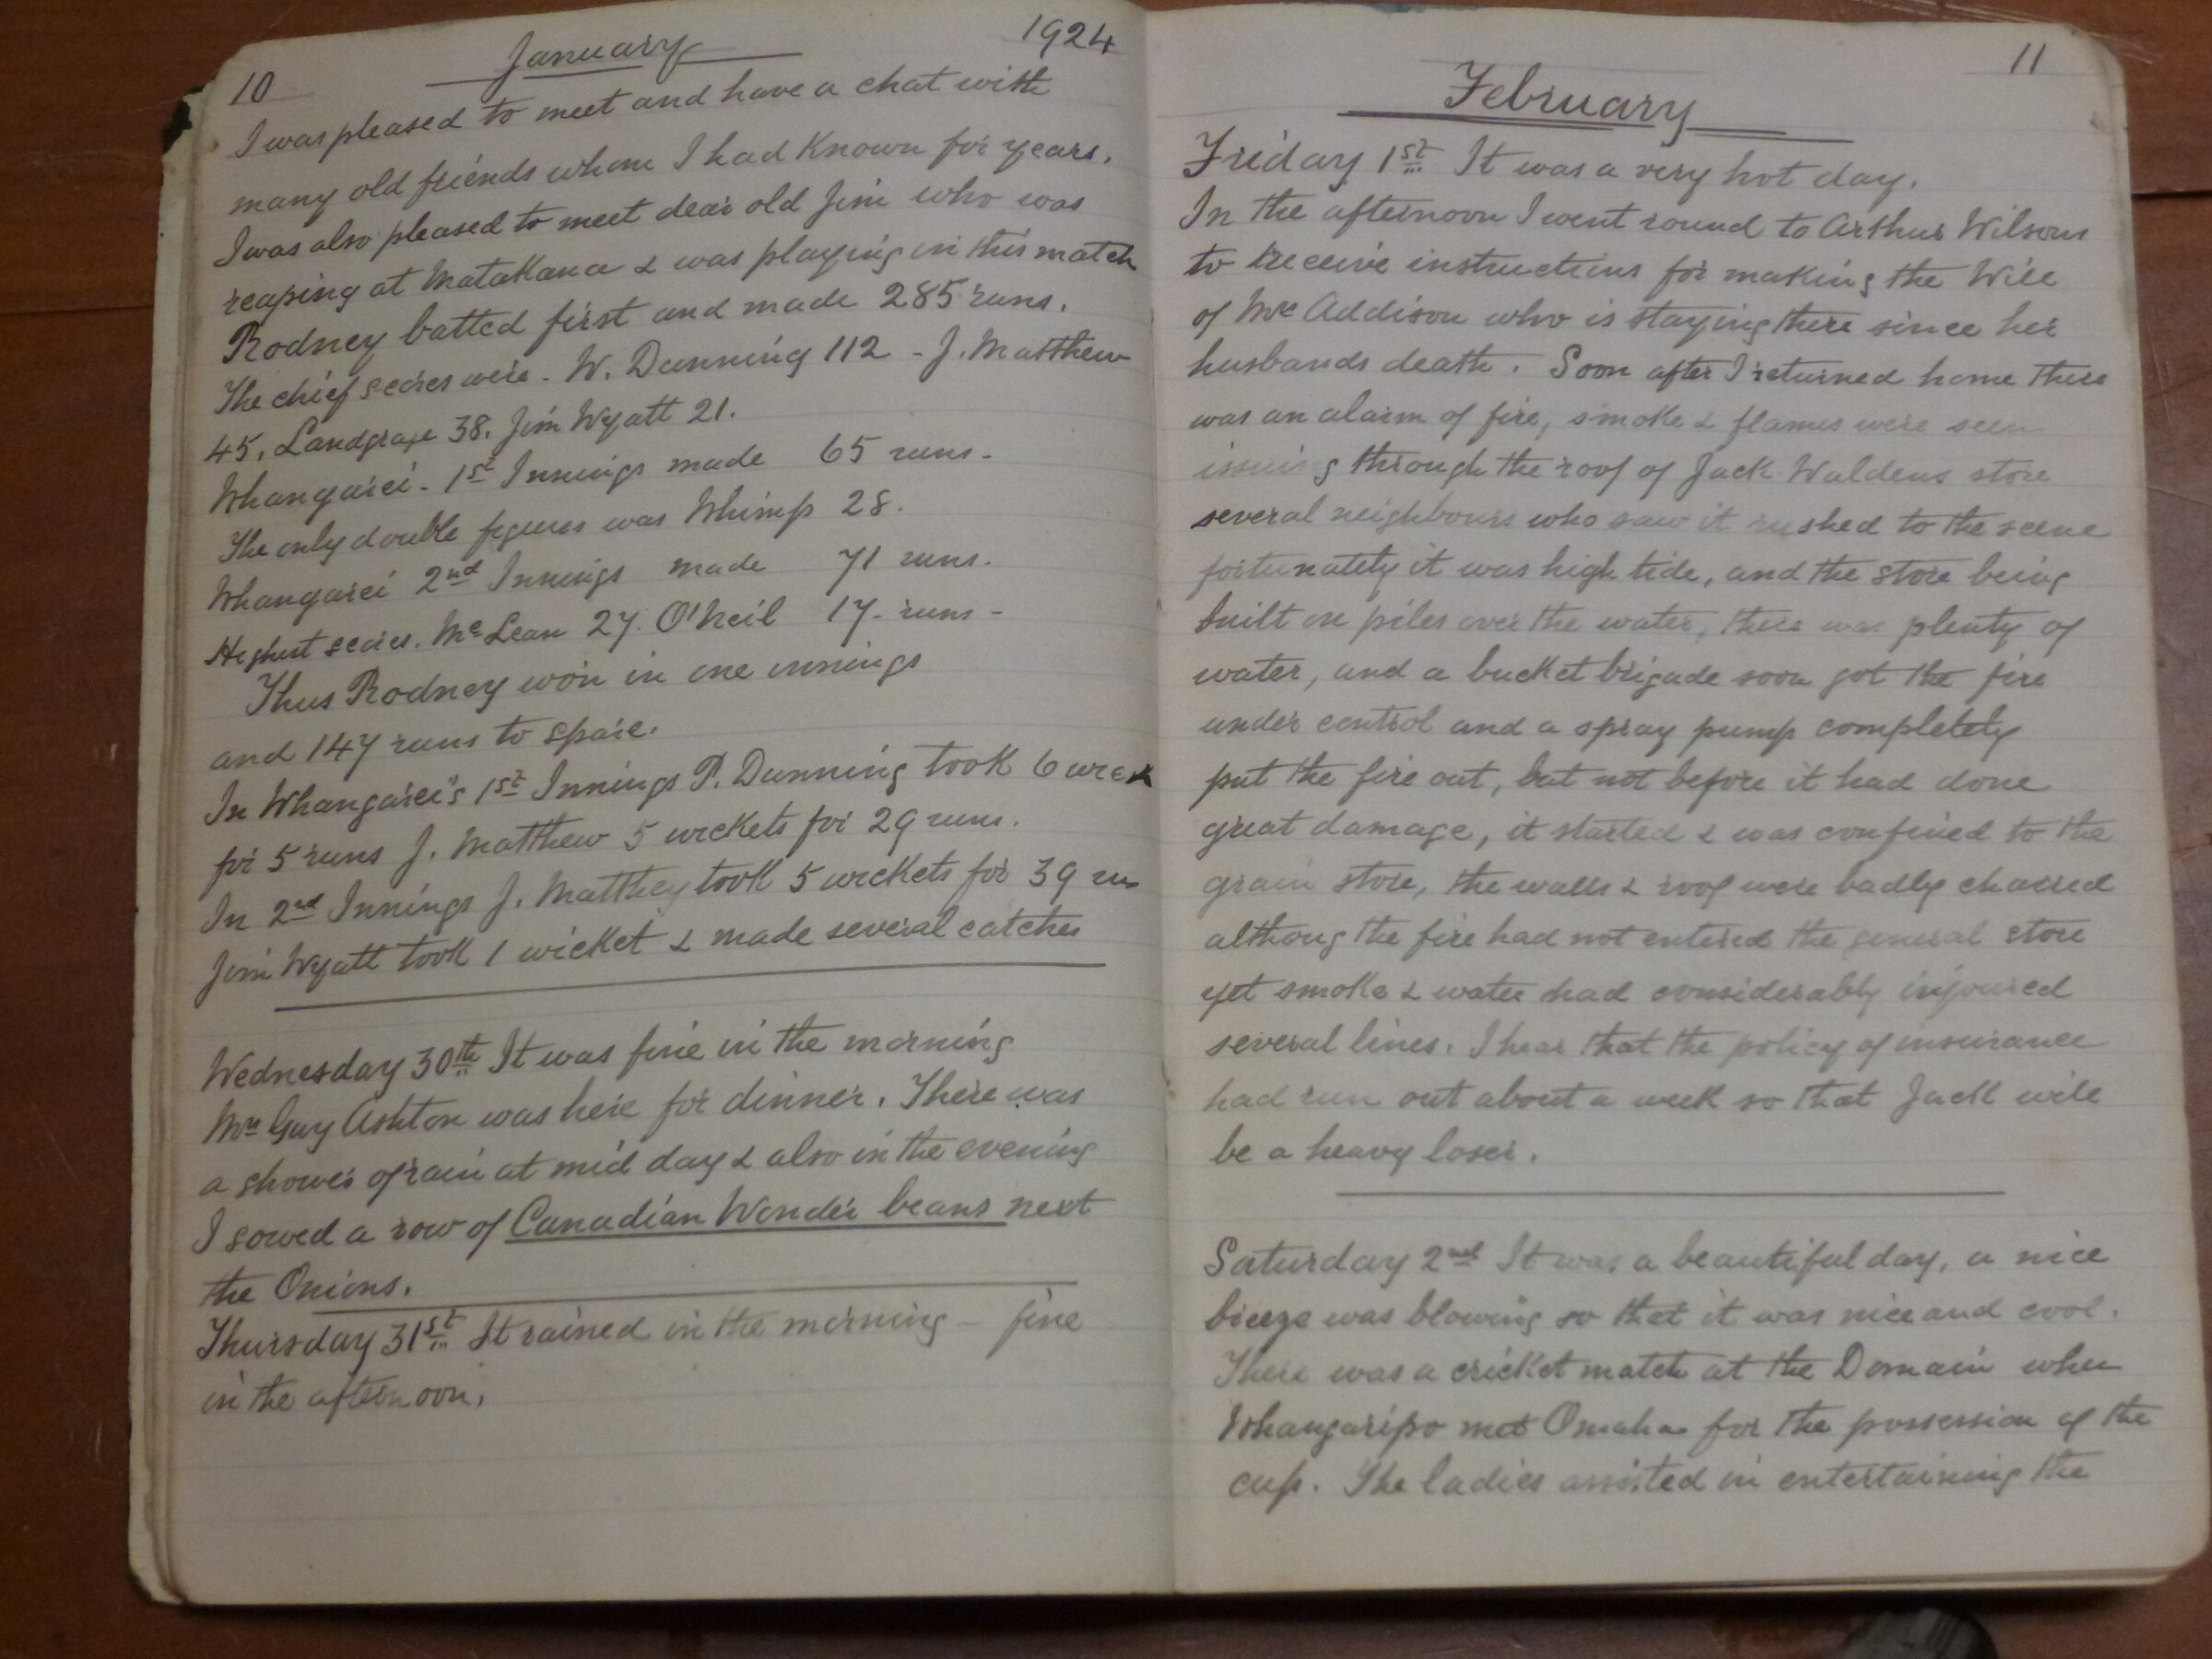 10 January 1924
I was pleased to meet and have a chat with
many old friends whom I had Known for years.
I was also pleased to meet dear old Jim who was
reaping at Matakana & was playing in this match
Rodney batted first and made 285 runs.
The chief scores were - W. Dunning 112 - J. Matthew
45. Landgrafe 38. Jim Wyatt 21.
Whangarei - 1st Innings made 65 runs -
The only double figures was Whimp 28.
Whangarei 2nd Innings made 71 runs.
Highest scores. McLean 27. O'Neil 17 - runs -
Thus Rodney won in one innings
and 147 runs to spare.
In Whangarei's 1st Innings P. Dunning took 6 wick
for 5 runs J. Matthew 5 wickets for 29 runs.
In 2nd Innings J. Matthey took 5 wickets for 39 run
Jim Wyatt took 1 wicket & made several catches
Wednesday 30th It was fine in the morning
Mrs Guy Ashton was here for dinner. There was
a shower of rain at mid day & also in the evening
I sowed a row of Canadian Wonder beans next
the Onions.
Thursday 31st It rained in the morning - fine
in the afternoon.
11
February
Friday 1st It was a very hot day.
In the afternoon I went round to Arthur Wilsons
to receive instructions for making the Will
of Mrs Addison who is staying there since her
husbands death. Soon after I returned home there
was an alarm of fire, smoke & flames were seen
issuing through the roof of Jack Waldens store
several neighbours who saw it rushed to the scene
fortunately it was high tide, and the store being
built on piles over the water, there was plenty of
water, and a bucket brigade soon got the fire
under control and a spray pump completely
put the fire out, but not before it had done
great damage, it started & was confined to the
grain store, the walls & roof were badly charred
althoug the fire had not entered the general store
yet smoke & water had considerably injoured
several lines. I hear that the policy of insurance
had run out about a week so that Jack will
be a heavy loser.
Saturday 2nd It was a beautiful day, a nice
breeze was blowing so that it was nice and cool.
There was a cricket match at the Domain when
Whangaripo met Omaha for the possession of the
cup. The ladies assisted in entertaining the